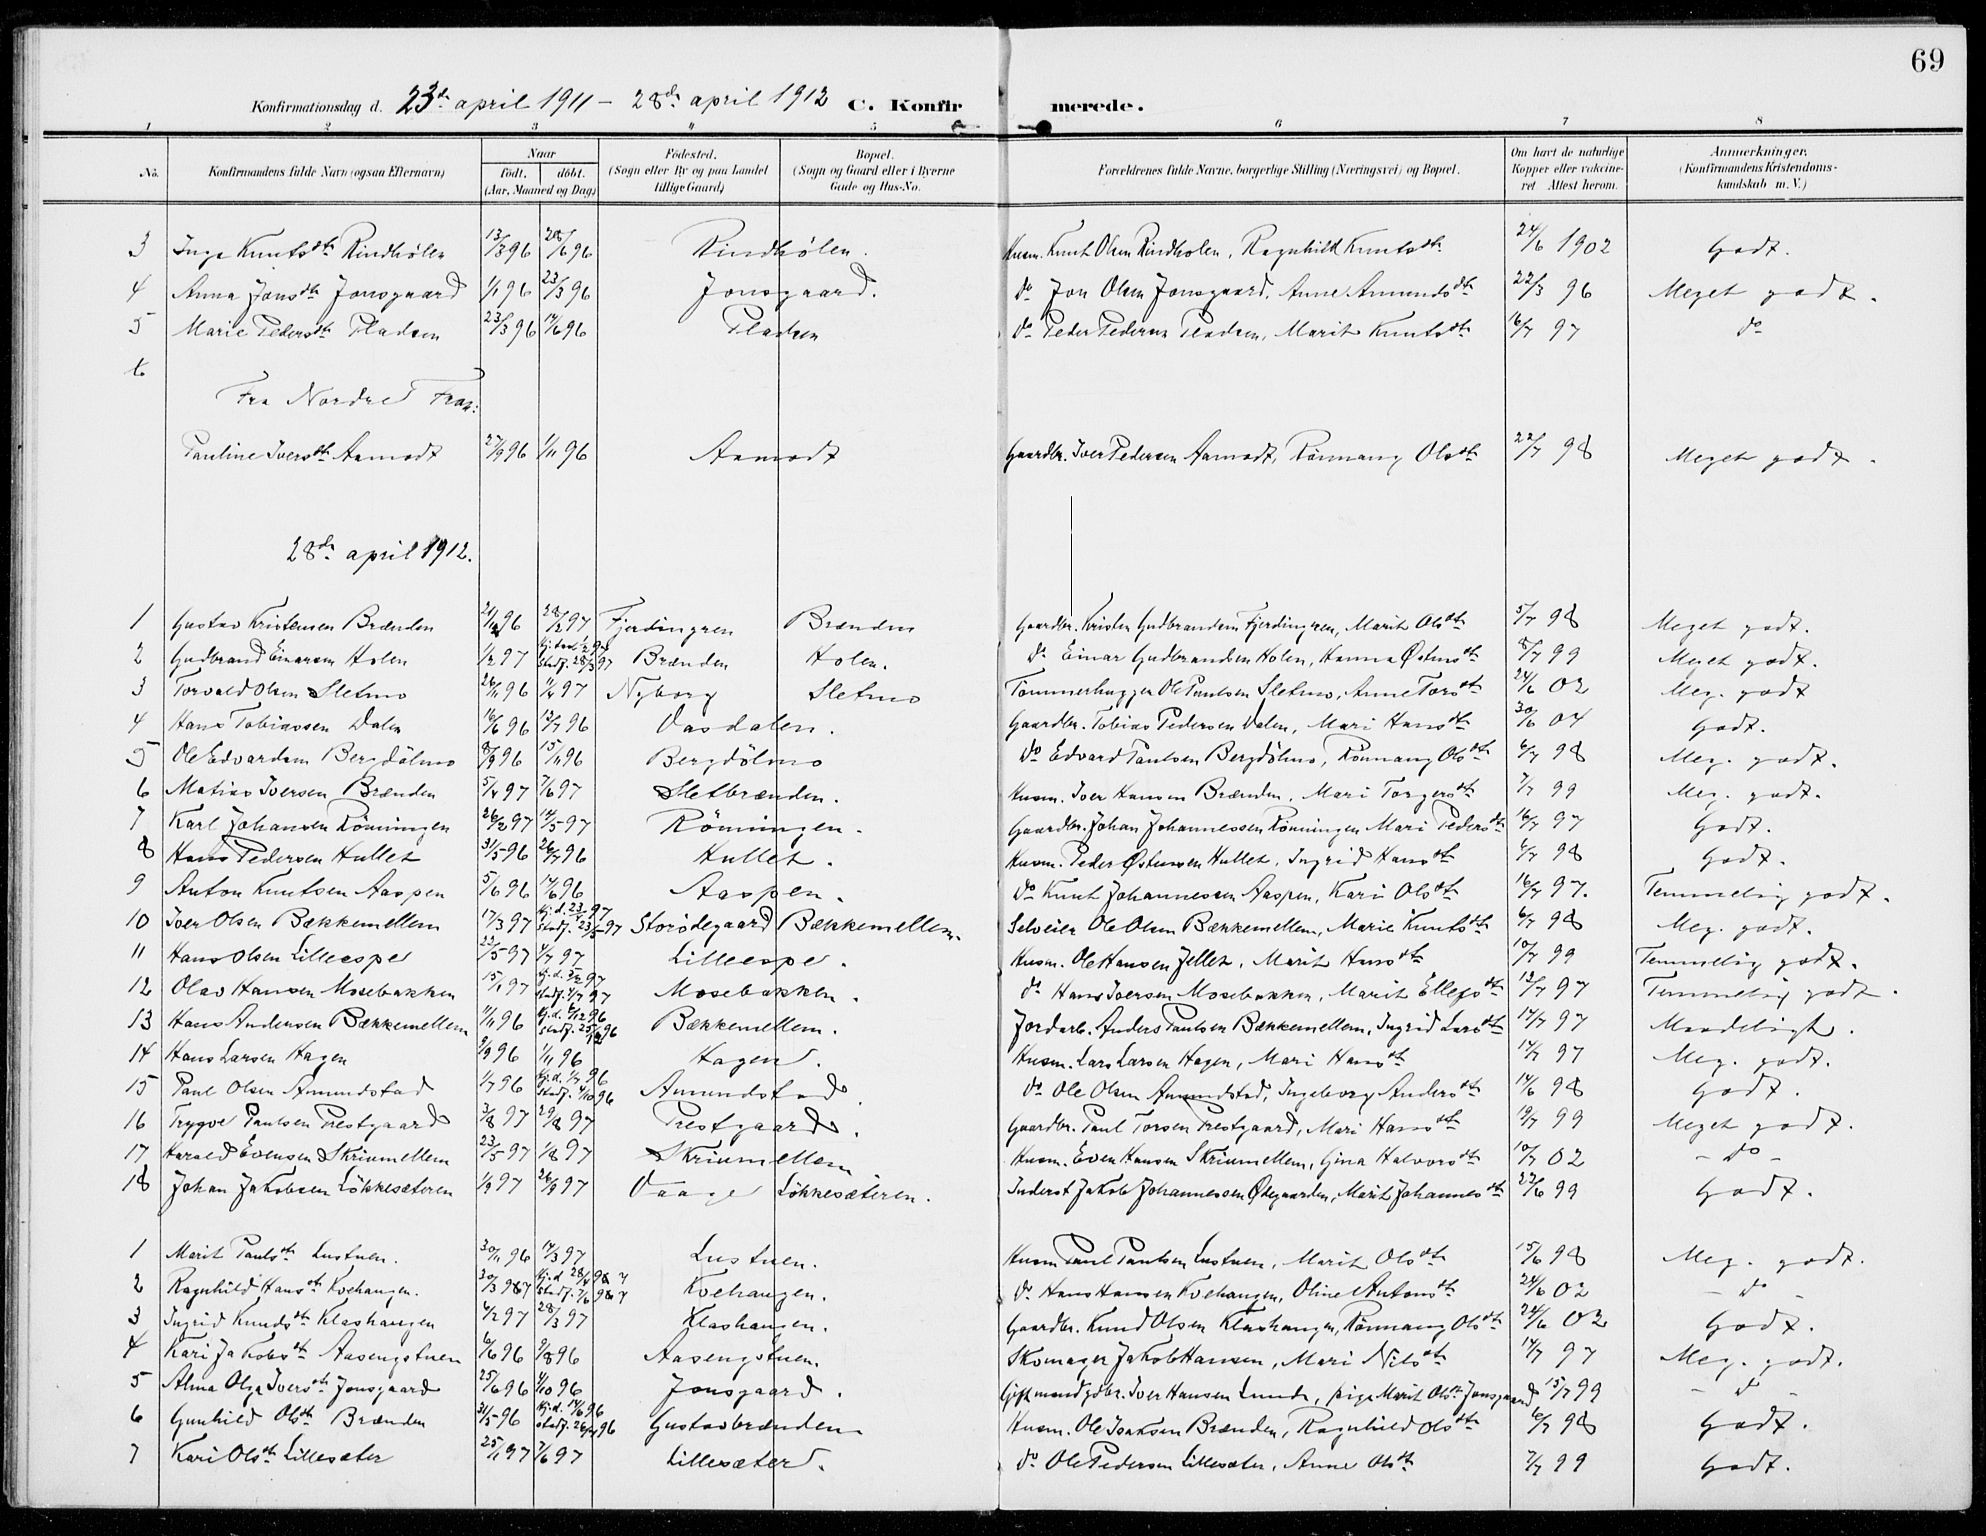 69
Konfirmationsdag d. 23de april 1911 – 28de april 1912 C. Konfirmerede.
1 2 3 4 5 6 7 8
No. Konfirmandens fulde Navn (ogsaa Efternavn) Naar født. døbt. (Aar, Maaned og Dag) Fødested. (Sogn eller By og paa Landet tillige Gaard) Bopæl. (Sogn og Gaard eller i Byerne Gade og Hus-No. Forældrenes fulde Navne, borgerlige Stilling (Næringsvei) og Bopæl. Om havt de naturlige Kopper eller vaccineret Attest herom. Anmærkninger. (Konfirmandens Kristendomskundskab m. V.)
3 Inga Knutsdtr Rindhølen 13/3 96 28/6 96 Rindhølen. Husm. Knut Olsen Rindholen, Ragnhild Knutsdtr 24/6 1902 Godt.
4 Anna Jonsdtr Jonsgaard 1/1 96 23/3 96 Jonsgaard. do Jon Olsen Jonsgaard, Anne Amundsdtr 22/3 96 Meget godt.
5 Marie Pedersdtr Pladsen 23/3 96 14/6 96 Pladsen do Peder Pedersen Pladsen, Marit Knutsdtr 16/7 97 do
6
Fra Nordre Fron:
Pauline Iversdtr Aamodt 27/9 96 1/11 96 Aamodt Gaardbr. Iver Pedersen Aamodt, Rønnaug Olsdtr 22/7 98 Meget godt.
28de april 1912.
1 Gustav Kristensen Brænden 21/12 96 28/2 97 Fjerdingren Brænden Gaardbr. Kristen Gudbrandsen Fjerdingren, Marit Olsdtr 5/7 98 Meget godt.
2 Gudbrand Einarsen Holen 1/2 97 stadf. 28/3 97 Brænden Holen. do Einar Gudbrandsen Holen, Hanna Østensdtr 8/7 99 Meget godt.
3 Torvald Olsen Sletmo 26/11 96 1/1 97 Nyborg Sletmo Tømmerhugger Ole Paulsen Sletmo, Anne Torsdtr 24/6 02 Meg. godt
4 Hans Tobiassen Dalen 16/6 96 12/7 96 Vasdalen. Gaardbr. Tobias Pedersen Dalen, Mari Hansdtr 30/6 04 Godt.
5 Ole Edvardsen Bergdølmo 8/9 96 15/11 96 Bergdølmo do Edvard Paulsen Bergdølmo, Rønnaug Olsdtr 6/7 98 Meg. godt.
6 Matias Iversen Brænden 5/4 97 7/6 97 Sletbrænden. Husm. Iver Hansen Brænden, Mari Torgersdtr 7/7 99 Meg. godt.
7 Karl Johansen Rønningen 26/2 97 14/5 97 Rønningen. Gaardbr. Johan Johannessen Rønningen Mari Pedersdtr 16/7 97 Godt.
8 Hans Pedersen Hullet 31/5 96 26/7 96 Hullet. Husm. Peder Østensen Hullet, Ingrid Hansdtr 6/7 98 Godt.
9 Anton Knutsen Aaspen 5/6 96 14/6 96 Aaspen. do Knut Johannessen Aaspen, Kari Olsdtr 16/7 97. Temmelig godt.
10 Iver Olsen Bækkemellem 17/3 97 hj. d. 23/3 97 stadf. 23/5 97 Storødegaard Bækkemellem. Selveier Ole Olsen Bækkemellem, Marie Knutsdtr 6/7 98 Meg. godt.
11 Hans Olsen Lilleespe 23/5 97 4/7 97 Lilleespe. Husm. Ole Hansen Jellet, Marit Hansdtr 10/7 99 Temmelig godt.
12 Olav Hansen Mosebakken 15/1 97 hj. d. 5/2 97 stadf. 4/7 97 Mosebakken. do Hans Iversen Mosebakken, Marit Ellefsdtr 12/7 97 Temmelig godt.
13 Hans Andersen Bækkemellem 11/11 96 hj. d. 6/12 96 stadf. 25/12 96 Bækkemellem. Jordarb. Anders Paulsen Bækkemellem, Ingrid Larsdtr 14/7 97 Maadeligt.
14 Hans Larsen Hagen 9/9 96 1/11 96 Hagen. Husm. Lars Larsen Hagen, Mari Hansdtr 14/7 97 Meg. godt.
15 Paul Olsen Amundstad 1/7 96 hj. d. 1/7 96 stadf. 4/10 96 Amundstad. do Ole Olsen Amundstad, Ingeborg Andersdtr 14/6 98 Godt.
16 Trygve Paulsen Prestgaard 3/8 97 29/8 97 Prestgaard. Gaardbr. Paul Torsen Prestgaard, Mari Hansdtr 19/7 99 Meget godt.
17 Harald Evensen Skriumellem 23/5 97 1/8 97 Skriumellem. Husm. Even Hansen Skriumellem, Gina Halvorsdtr 10/7 02 – do –
18 Johan Jakobsen Løkkesæteren 1/9 97 26/9 97 Vaage Løkkesæteren. Inderst Jakob Johannessen Øtegaarden, Marit Johannesdtr 22/6 99 Godt.
1 Marit Paulsdtr Lustuen. 30/11 96 14/3 97 Lustuen. Husm. Paul Paulsen Lustuen, Marit Olsdtr 15/6 98 Meg. godt.
2 Ragnhild Hansdtr Kvehaugen. 30/3 987 hj. d. 28/4 98 7 stadf. 7/6 98 7 Kvehaugen. do Hans Hansen Kvehaugen, Oline Antonsdtr 24/6 02 – do –
3 Ingrid Knudsdtr Klashaugen 6/2 97 28/3 97 Klashaugen. Gaardbr. Knud Olsen Klashaugen, Rønnaug Olsdtr 24/6 02 Godt.
4 Kari Jakobsdtr Aasengstuen 6/6 96 9/8 96 Aasengstuen. Skomager Jakob Hansen, Mari Nilsdtr 14/7 97 Meg. godt.
5 Alma Olga Iversdtr Jonsgaard 25/6 96 4/10 96 Jonsgaard. Gift mand gdbr. Iver Hansen Lunde, pige Marit Olsdtr Jonsgaard 15/7 99 – do –
6 Gunhild Olsdtr Brænden 31/5 96 hj. d. 14/6 96 stadf. 26/7 96 Gustavbrænden. Husm. Ole Isaksen Brænden, Ragnhild Olsdtr 6/7 98 Godt.
7 Kari Olsdtr Lillesæter 25/1 97 7/6 97 Lillesæter. do Ole Pedersen Lillesæter, Anne Olsdtr 7/7 99 Godt.